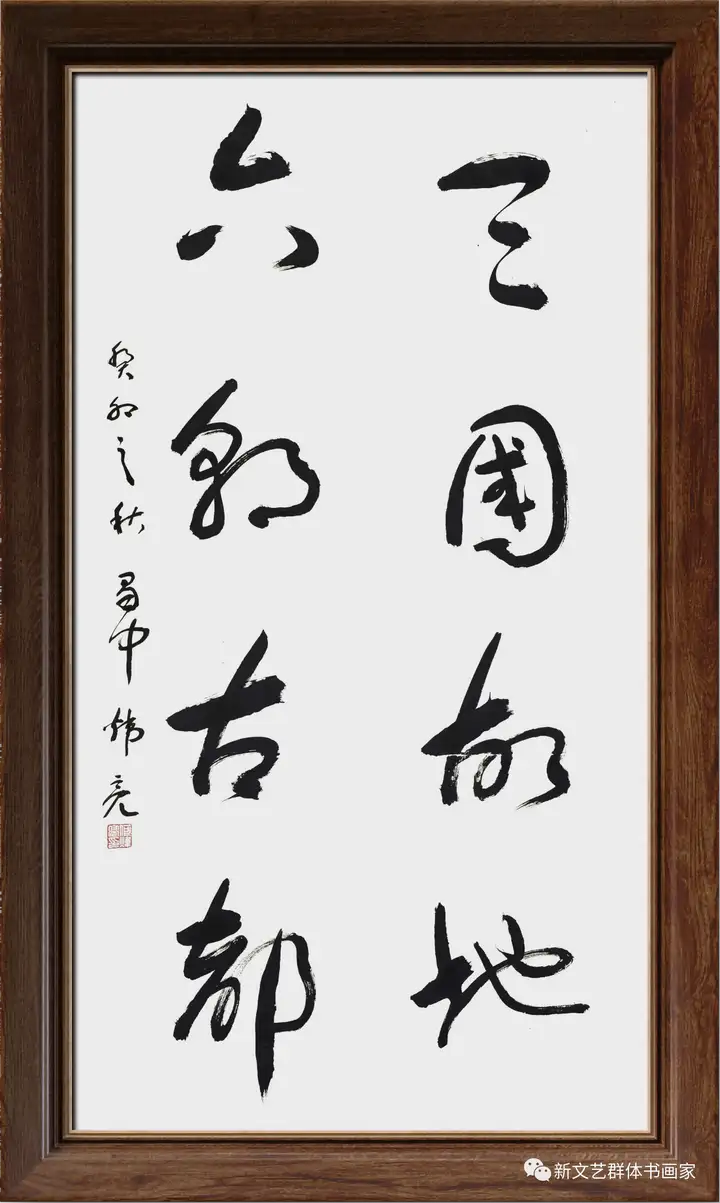 三國故地
六朝古都
癸卯之秋蜀中炜亮
新文艺群体书画家